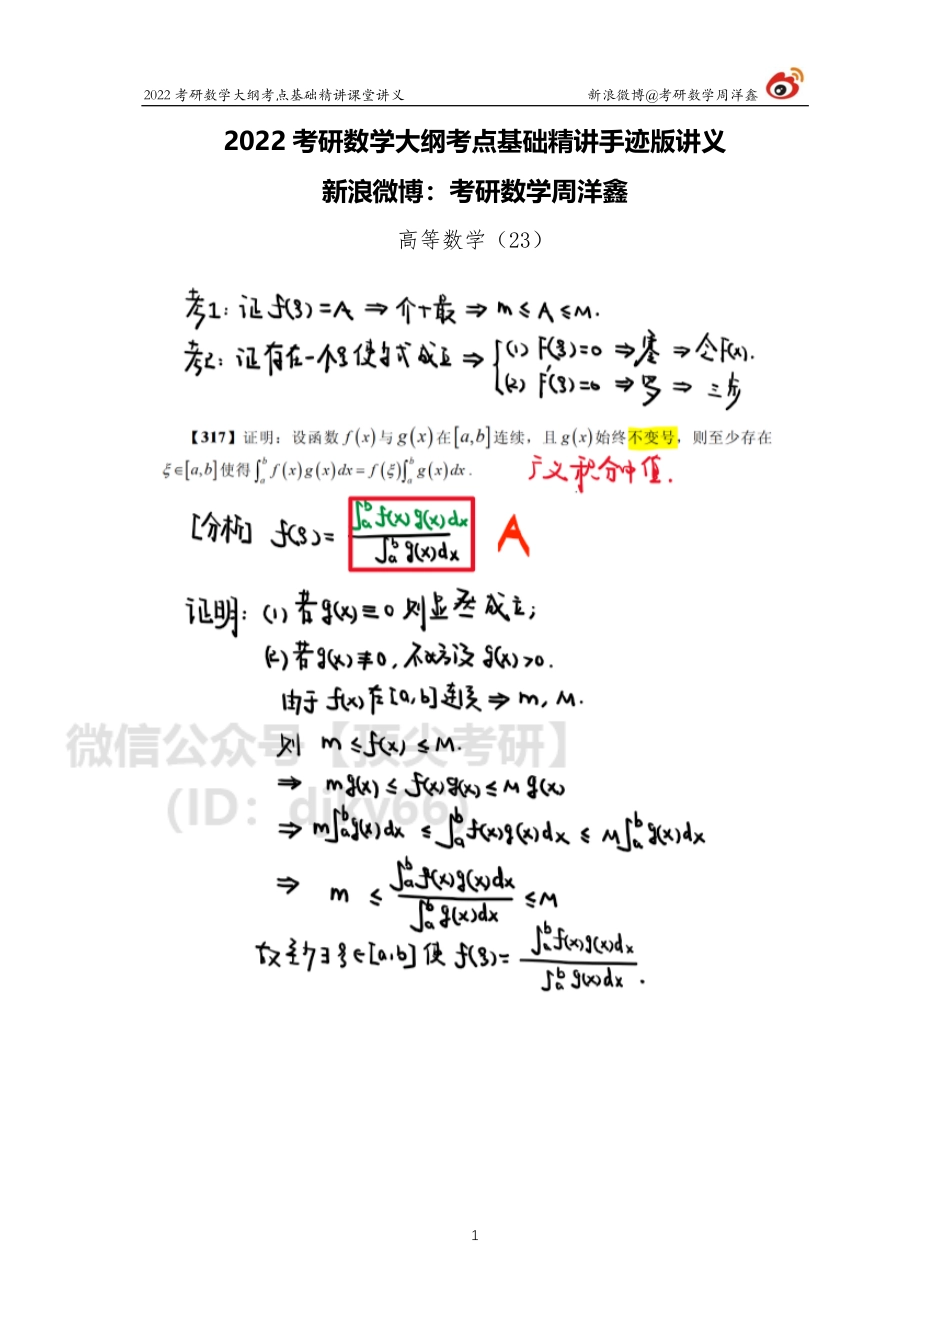 2022 考研数学大纲考点基础精讲课堂讲义 新浪微博@考研数学周洋鑫
2022 考研数学大纲考点基础精讲手迹版讲义
新浪微博：考研数学周洋鑫
高等数学（23）
考1: 证 f(ξ)=A ⇒ 介+最 ⇒ m ≤ A ≤ M.
考2: 证存在一个ξ使等式成立 ⇒ { (1) F(ξ)=0 ⇒ 零 ⇒ 令F(x).
(2) F'(ξ)=0 ⇒ 罗 ⇒ 三步
【317】证明：设函数 f(x) 与 g(x) 在 [a,b] 连续，且 g(x) 始终不变号，则至少存在
ξ∈[a,b] 使得 ∫_a^b f(x)g(x)dx = f(ξ)∫_a^b g(x)dx .
广义积分中值.
[分析] f(ξ)= ∫_a^b f(x)g(x)dx / ∫_a^b g(x)dx A
证明: (1) 若 g(x)≡0 则显然成立;
(2) 若 g(x)≢0, 不妨设 g(x)>0.
由于 f(x) 在 [a,b] 连续 ⇒ m, M.
则 m ≤ f(x) ≤ M.
⇒ mg(x) ≤ f(x)g(x) ≤ M g(x)
⇒ m∫_a^b g(x)dx ≤ ∫_a^b f(x)g(x)dx ≤ M∫_a^b g(x)dx
⇒ m ≤ ∫_a^b f(x)g(x)dx / ∫_a^b g(x)dx ≤ M
故至少∃ξ∈[a,b] 使 f(ξ)= ∫_a^b f(x)g(x)dx / ∫_a^b g(x)dx .
微信公众号【顶尖考研】
(ID：djky66)
1